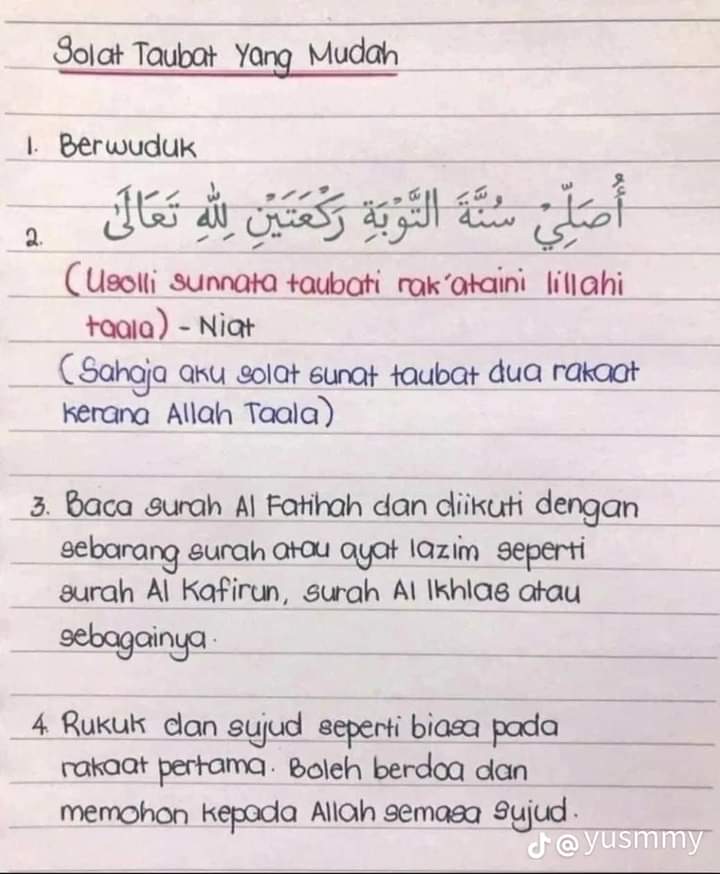 Solat Taubat Yang Mudah
1. Berwuduk
2. أُصَلِّيْ سُنَّةَ التَّوْبَةِ رَكْعَتَيْنِ لِلّٰهِ تَعَالَىٰ
(Usolli sunnata taubati rak'ataini lillahi
taala) - Niat
(Sahaja aku solat sunat taubat dua rakaat
kerana Allah Taala)
3. Baca surah Al Fatihah dan diikuti dengan
sebarang surah atau ayat lazim seperti
surah Al Kafirun, surah Al Ikhlas atau
sebagainya.
4. Rukuk dan sujud seperti biasa pada
rakaat pertama. Boleh berdoa dan
memohon kepada Allah semasa sujud.
@yusmmy